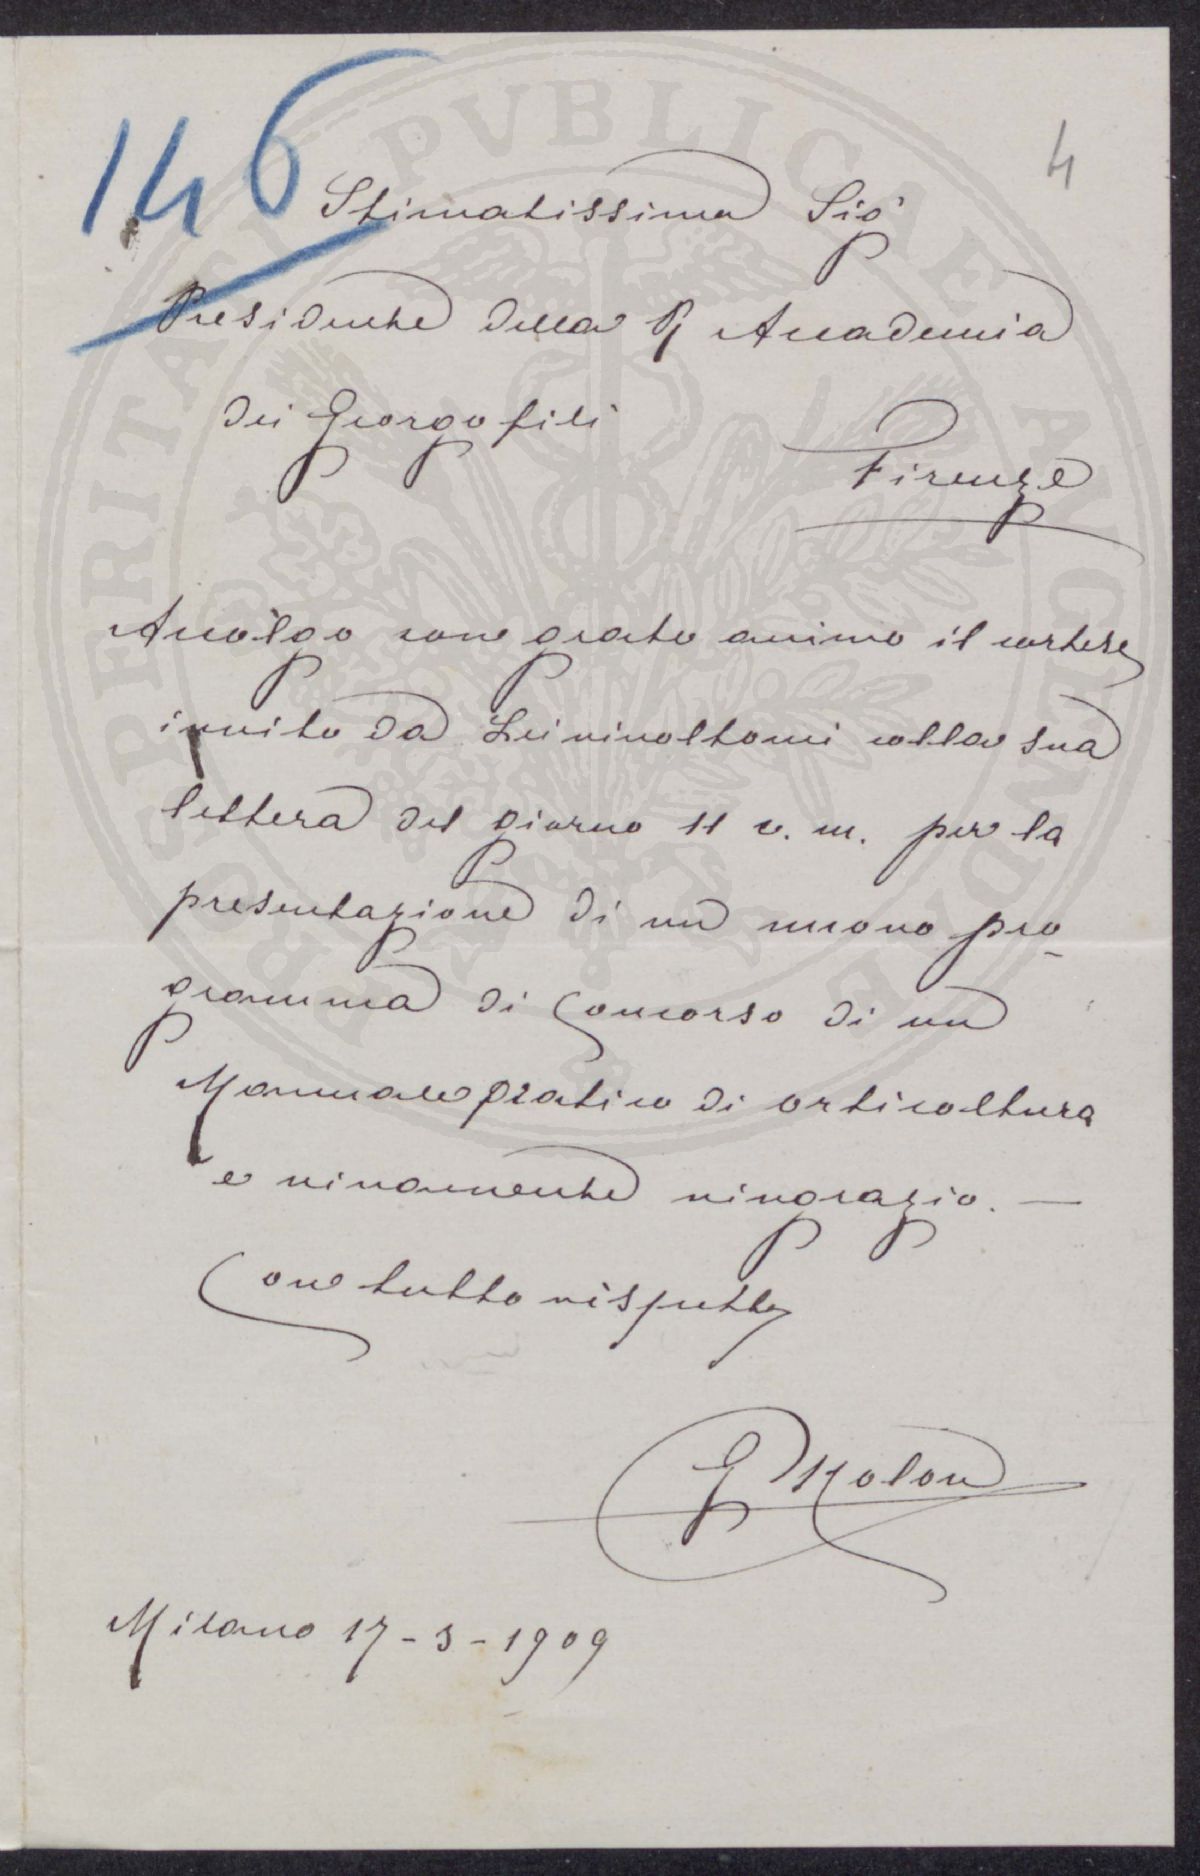 146
4
Stimatissimo Sigr
Presidente della R Accademia
dei Georgofili
Firenze
Accolgo con grato animo il cortese
invito da Lei rivoltomi colla sua
lettera del giorno 11 c. m. per la
presentazione di un nuovo pro-
gramma di Concorso di un
Manuale pratico di orticoltura
e vivamente ringrazio. —
Con tutto rispetto
G Molon
Milano 17-3-1909
PROSPERITATI PVBLICAE AVGENDAE